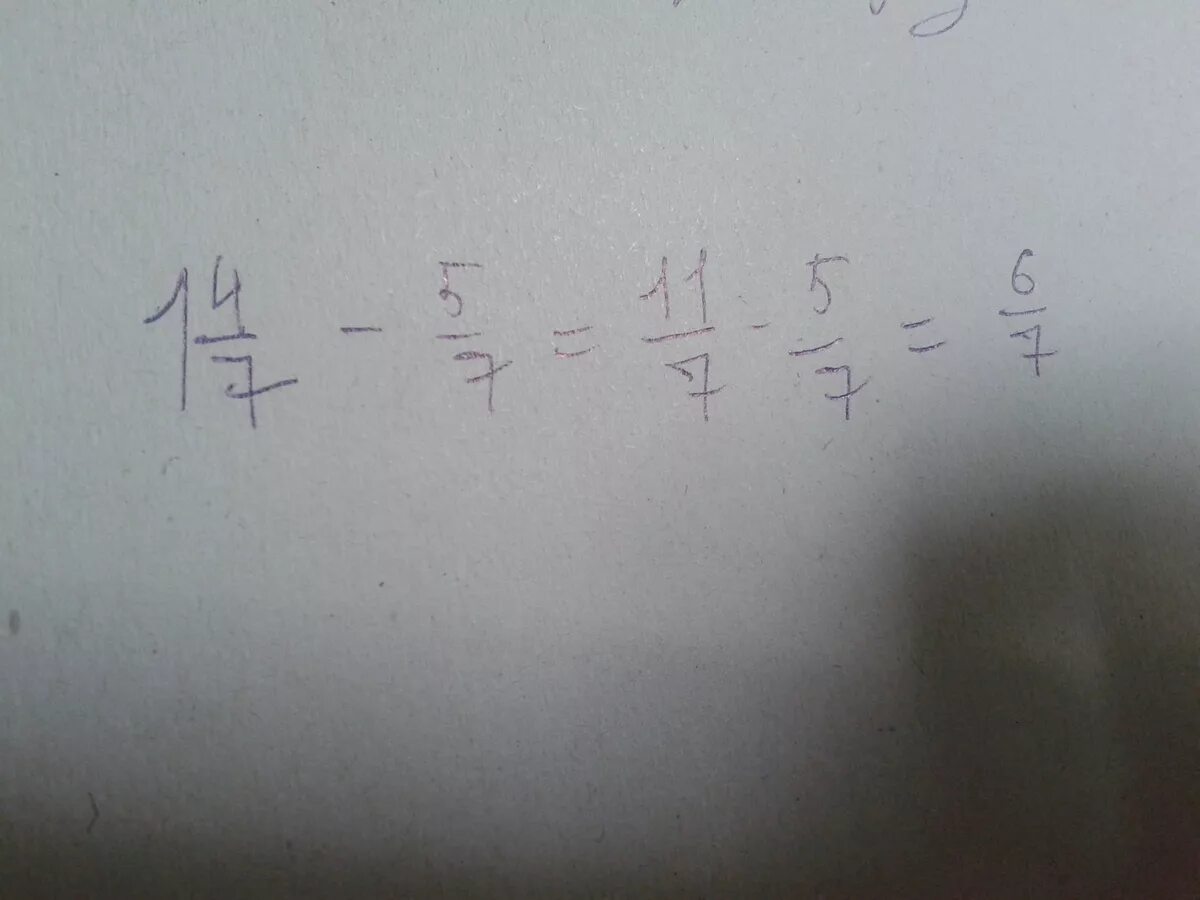 1 4/7 - 5/7 = 11/7 - 5/7 = 6/7